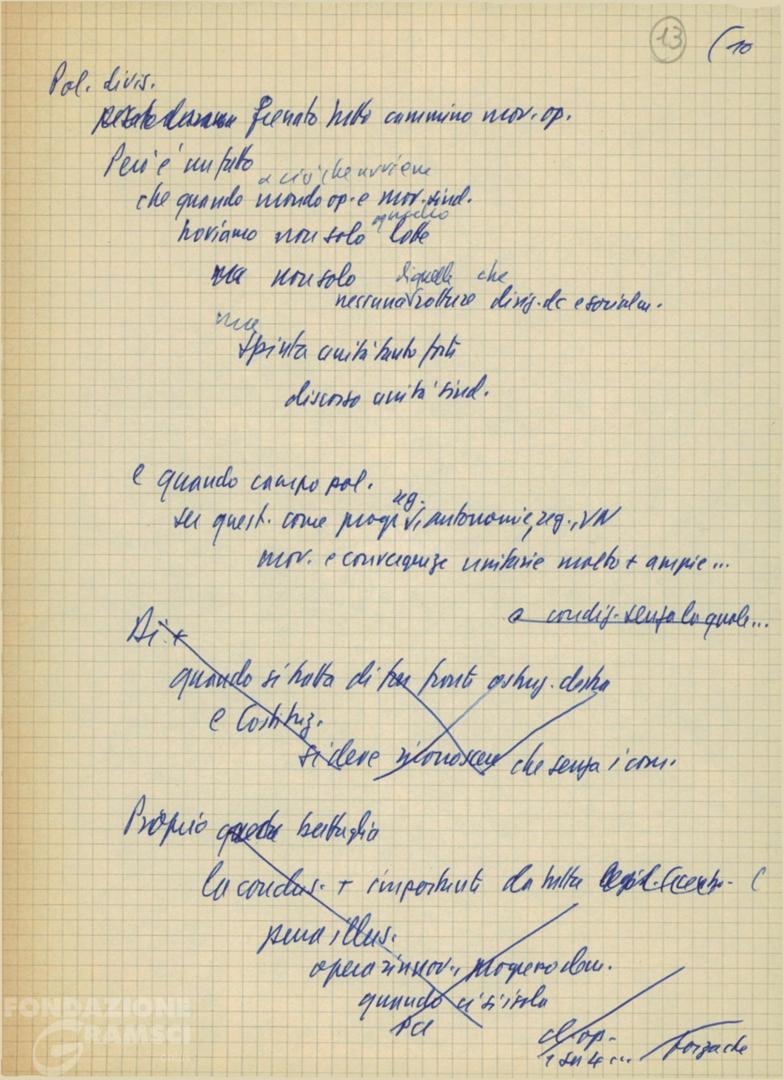 13 (10
Pol. divis.
frenato tutto cammino mov. op.
Però è un fatto
a ciò che avviene
che quando mondo op. e mov. sind.
quello
troviamo non solo lotte
ma non solo di quelle che
nessuna rotture divis. dc e socialdem.
ma
spinta unità tanto forte
discorso unità sind.
e quando campo pol.
reg.
su quest. come progr , autonomie, reg., VN
mov. e convergenze unitarie molto + ampie...
a condiz. senza la quale...
Di +
quando si tratta di far fronte ostruz. destra
e Costituz.
si deve riconoscere che senza i com.
Proprio questa battaglia
la conclus. + importante da tutta
pura illus.
opera rinnov., progresso dem.
quando ci si isola
PCI cl. op.
Forza che